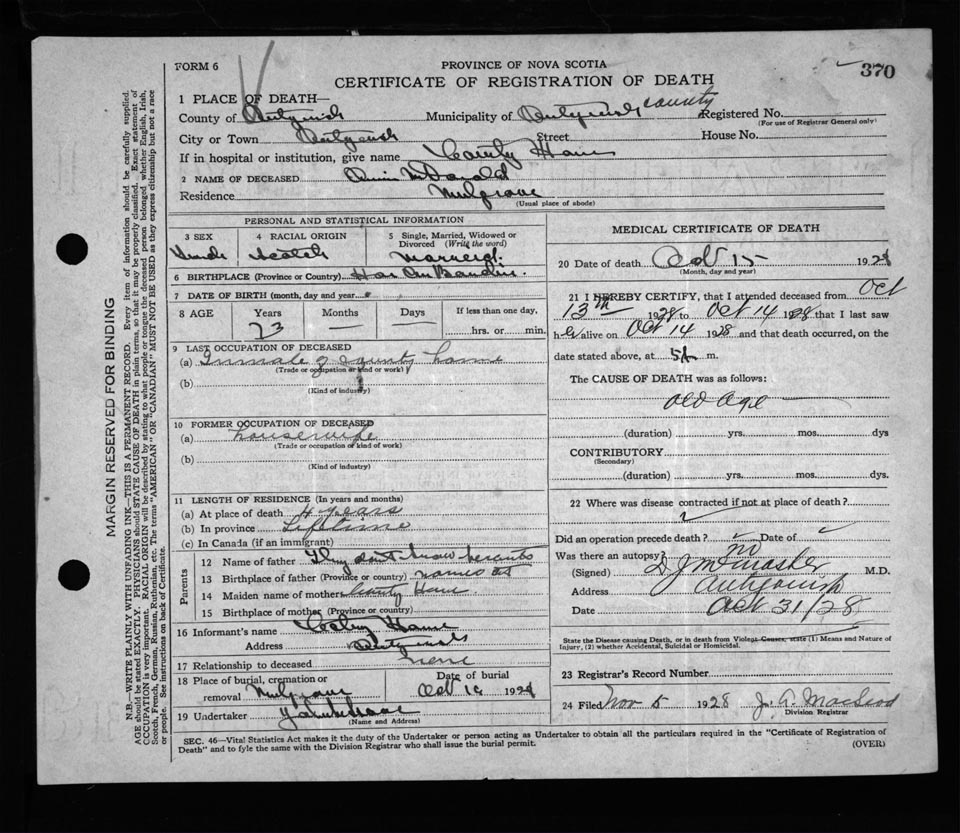 FORM 6
PROVINCE OF NOVA SCOTIA
370
CERTIFICATE OF REGISTRATION OF DEATH
1 PLACE OF DEATH—
County of Antigonish Municipality of Antigonish County Registered No.
(For use of Registrar General only)
City or Town Antigonish Street House No.
If in hospital or institution, give name County Home
2 NAME OF DECEASED Annie McDonald
Residence Mulgrave
(Usual place of abode)
PERSONAL AND STATISTICAL INFORMATION
3 SEX
4 RACIAL ORIGIN Scotch
5 Single, Married, Widowed or Divorced (Write the word)
Married
6 BIRTHPLACE (Province or Country) Har Au Bouche
7 DATE OF BIRTH (month, day and year)
8 AGE Years Months Days If less than one day,
73 — — hrs. or min.
9 LAST OCCUPATION OF DECEASED
(a) Inmate of County home
(Trade or occupation or kind of work)
(b)
(Kind of industry)
10 FORMER OCCUPATION OF DECEASED
(a) housewife
(Trade or occupation or kind of work)
(b)
(Kind of industry)
11 LENGTH OF RESIDENCE (In years and months)
(a) At place of death 4 years
(b) In province Lifetime
(c) In Canada (if an immigrant)
Parents
12 Name of father They dont know parents
13 Birthplace of father (Province or country) names at
14 Maiden name of mother County Home
15 Birthplace of mother (Province or country)
16 Informant's name County Home
Address Antigonish
17 Relationship to deceased
18 Place of burial, cremation or removal Mulgrave
Date of burial
Oct 16 1928
19 Undertaker
(Name and Address)
MEDICAL CERTIFICATE OF DEATH
20 Date of death Oct 15 1928
(Month, day and year)
21 I HEREBY CERTIFY, that I attended deceased from Oct
13th 1928 to Oct 14 1928 that I last saw
her alive on Oct 14 1928 and that death occurred, on the
date stated above, at 5A m.
The CAUSE OF DEATH was as follows:
Old Age
(duration) yrs. mos. dys
CONTRIBUTORY
(Secondary)
(duration) yrs. mos. dys.
22 Where was disease contracted if not at place of death?
Did an operation precede death? Date of
Was there an autopsy? no
(Signed) M.D.
Address Antigonish
Date Oct 31/28
State the Disease causing Death, or in death from Violent Causes, state (1) Means and Nature of
Injury, (2) whether Accidental, Suicidal or Homicidal.
23 Registrar's Record Number
24 Filed Nov 5 1928 J. A. MacLeod
Division Registrar
SEC. 46—Vital Statistics Act makes it the duty of the Undertaker or person acting as Undertaker to obtain all the particulars required in the "Certificate of Registration of
Death" and to fyle the same with the Division Registrar who shall issue the burial permit.
(OVER)
MARGIN RESERVED FOR BINDING
N.B.—WRITE PLAINLY WITH UNFADING INK—THIS IS A PERMANENT RECORD. Every item of information should be carefully supplied.
AGE should be stated EXACTLY. PHYSICIANS should STATE CAUSE OF DEATH in plain terms, so that it may be properly classified. Exact statement of
OCCUPATION is very important. RACIAL ORIGIN will be described by stating to what people or tongue the deceased person belonged whether English, Irish,
Scotch, French, German, Russian, Ruthenian, etc. The terms "AMERICAN" OR "CANADIAN" MUST NOT BE USED as they express citizenship but not a race
or people. See instructions on back of Certificate.